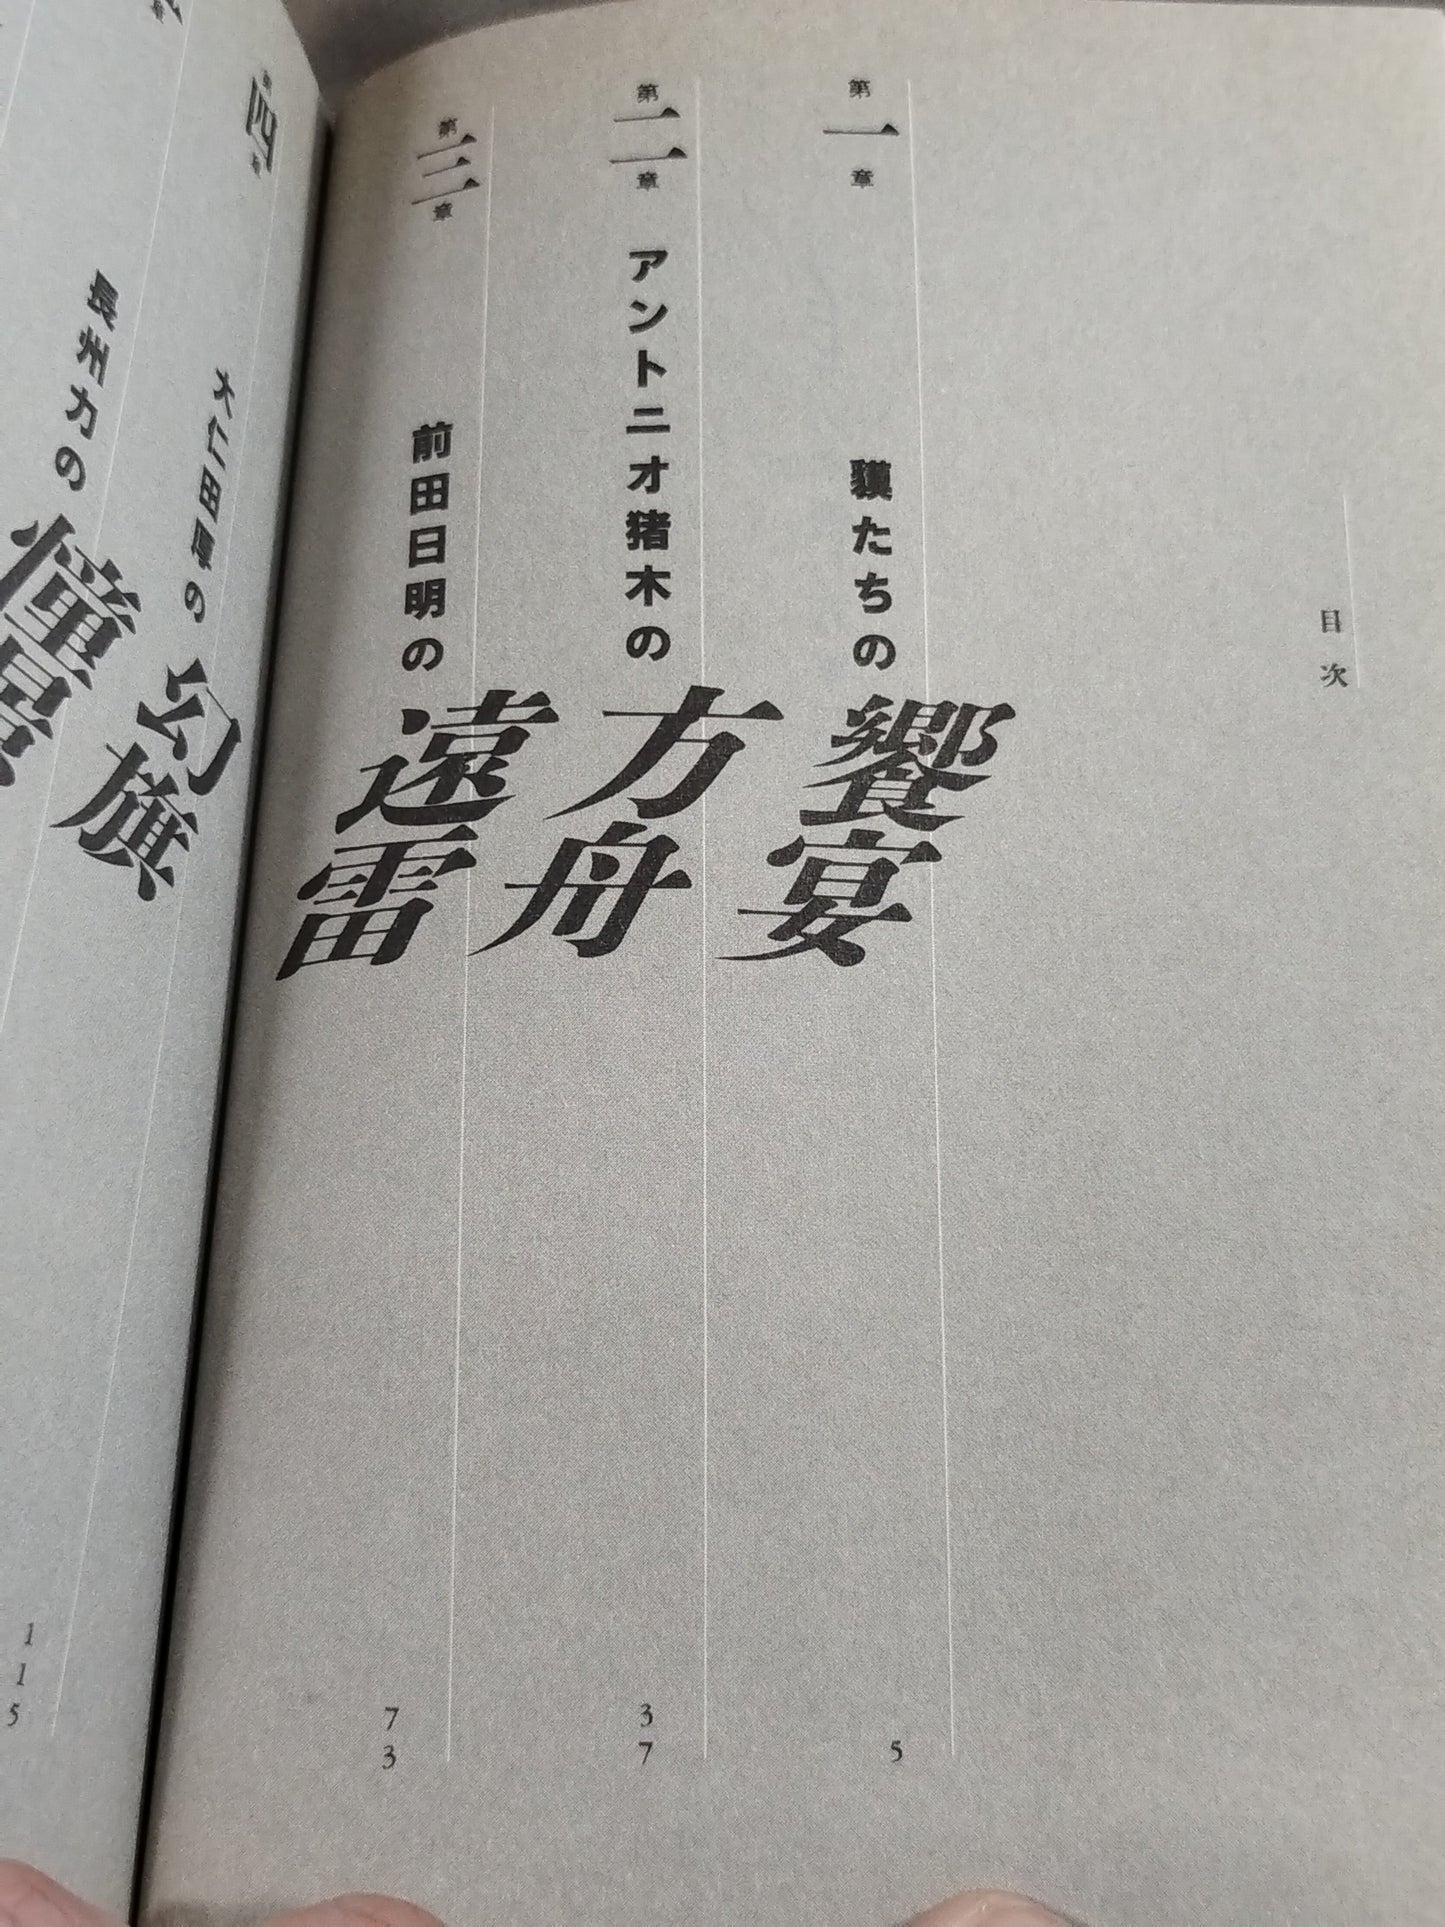 目次
第一章
獏たちの饗宴
5
第二章
アントニオ猪木の方舟
37
第三章
前田日明の遠雷
73
第四章
大仁田厚の幻旗
長州力の憧憬
115